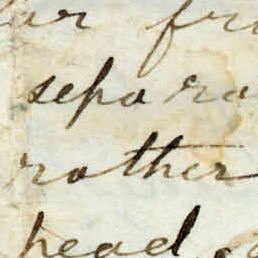 fr
separa
rather
head